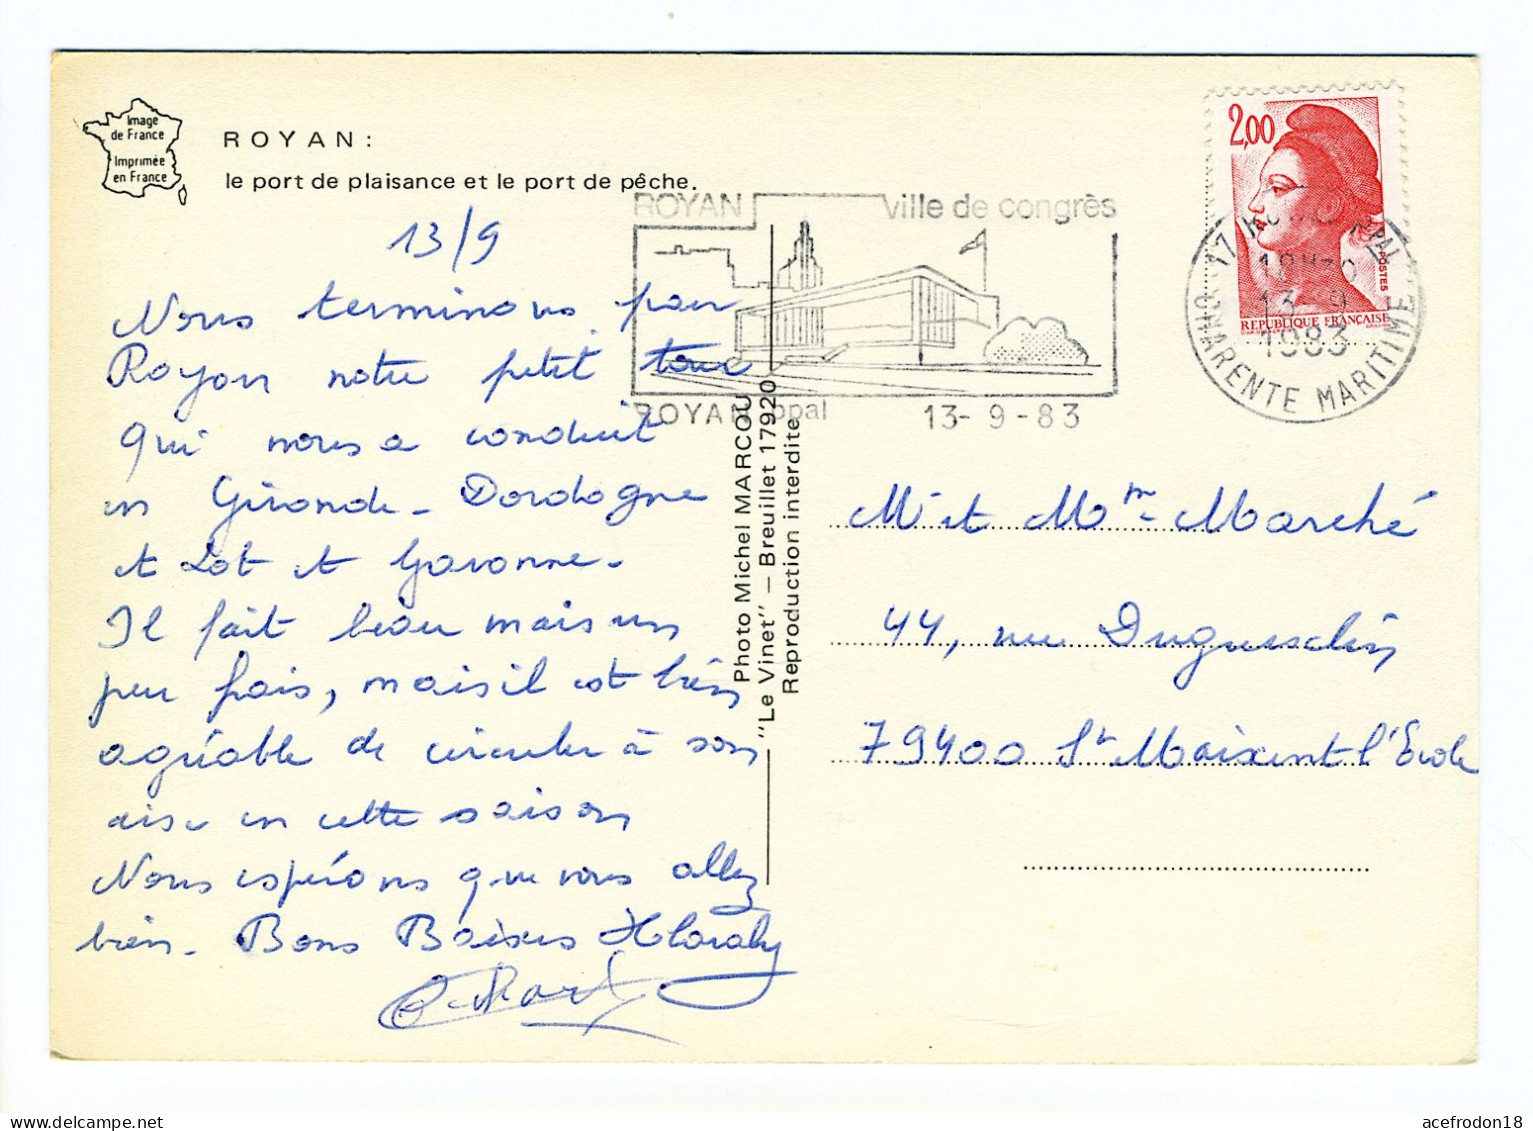 Image
de France
Imprimée
en France
ROYAN :
le port de plaisance et le port de pêche.
ROYAN ville de congrès
ROYAN ppal 13-9-83
2,00
POSTES
REPUBLIQUE FRANÇAISE
17 PAL
18H30
13-9
1983
CHARENTE MARITIME
13/9
Nous terminons par
Royan notre petit tour
qui nous a conduit
en Gironde - Dordogne
et Lot et Garonne.
Il fait beau mais un
peu frais, mais il est bien
agréable de circuler à son
aise en cette saison
Nous espérons que vous allez
bien. Bons Baisers
Photo Michel MARCOU
"Le Vinet" — Breuillet 17920
Reproduction interdite
Mr et Mme Marché
44, rue Duguesclin
79400 St Maixent l'Ecole
acefrodon18